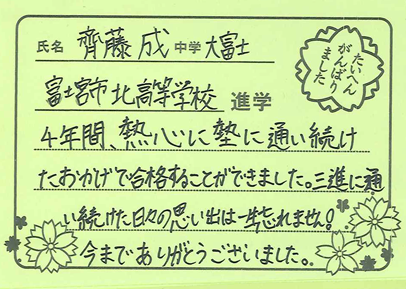 氏名 齊藤 成 中学 大富士
たいへん
がんばり
ました
富士宮市北高等学校 進学
4年間、熱心に塾に通い続け
たおかげで合格することができました。三進に通
い続けた日々の思い出は一生忘れません!
今までありがとうございました。